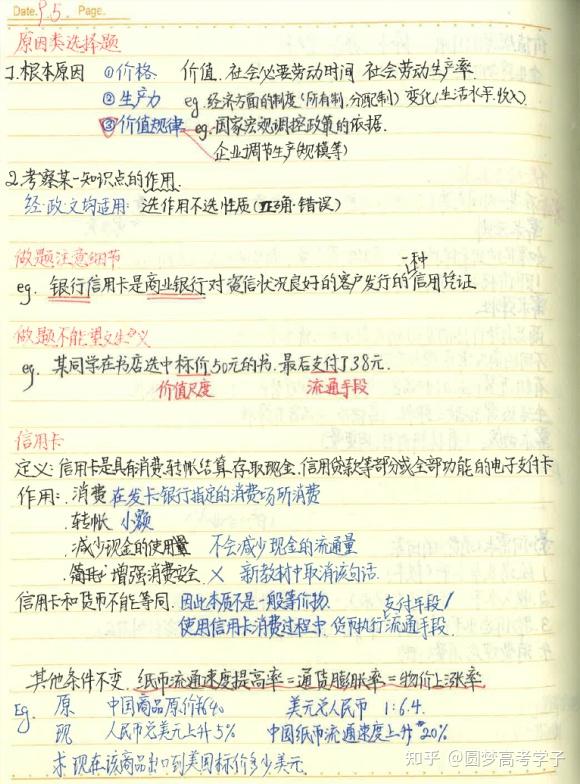 Date. 9.5. Page.
原因类选择题
1.根本原因 ①价格 价值.社会必要劳动时间 社会劳动生产率.
②生产力 eg.经济方面的制度(所有制,分配制) 变化(生活水平.收入)
③价值规律 eg.国家宏观调控政策的依据.
企业调节生产(规模等)
2.考察某一知识点的作用.
经.政.文均适用:选作用不选性质(正确.错误)
做题注意细节
eg. 银行信用卡是商业银行对资信状况良好的客户发行的一种信用凭证
做题不能望文生义
eg. 某同学在书店选中标价50元的书.最后支付了38元.
价值尺度 流通手段
信用卡
定义:信用卡是具有消费.转帐结算.存取现金.信用贷款等部分或全部功能的电子支付卡
作用:.消费 在发卡银行指定的消费场所消费
.转帐 小额
.减少现金的使用量 不会减少现金的流通量
.简化 增强消费安全 × 新教材中取消该句话.
信用卡和货币不能等同.因此本质不是一般等价物. 支付手段/
使用信用卡消费过程中.货币执行流通手段.
其他条件不变.纸币流通速度提高率=通货膨胀率=物价上涨率
Eg. 原 中国商品原价640 美元兑人民币 1:6.4.
现 人民币兑美元上升5% 中国纸币流通速度上升20%
求现在该商品出口到美国标价多少美元.
知乎 @圆梦高考学子